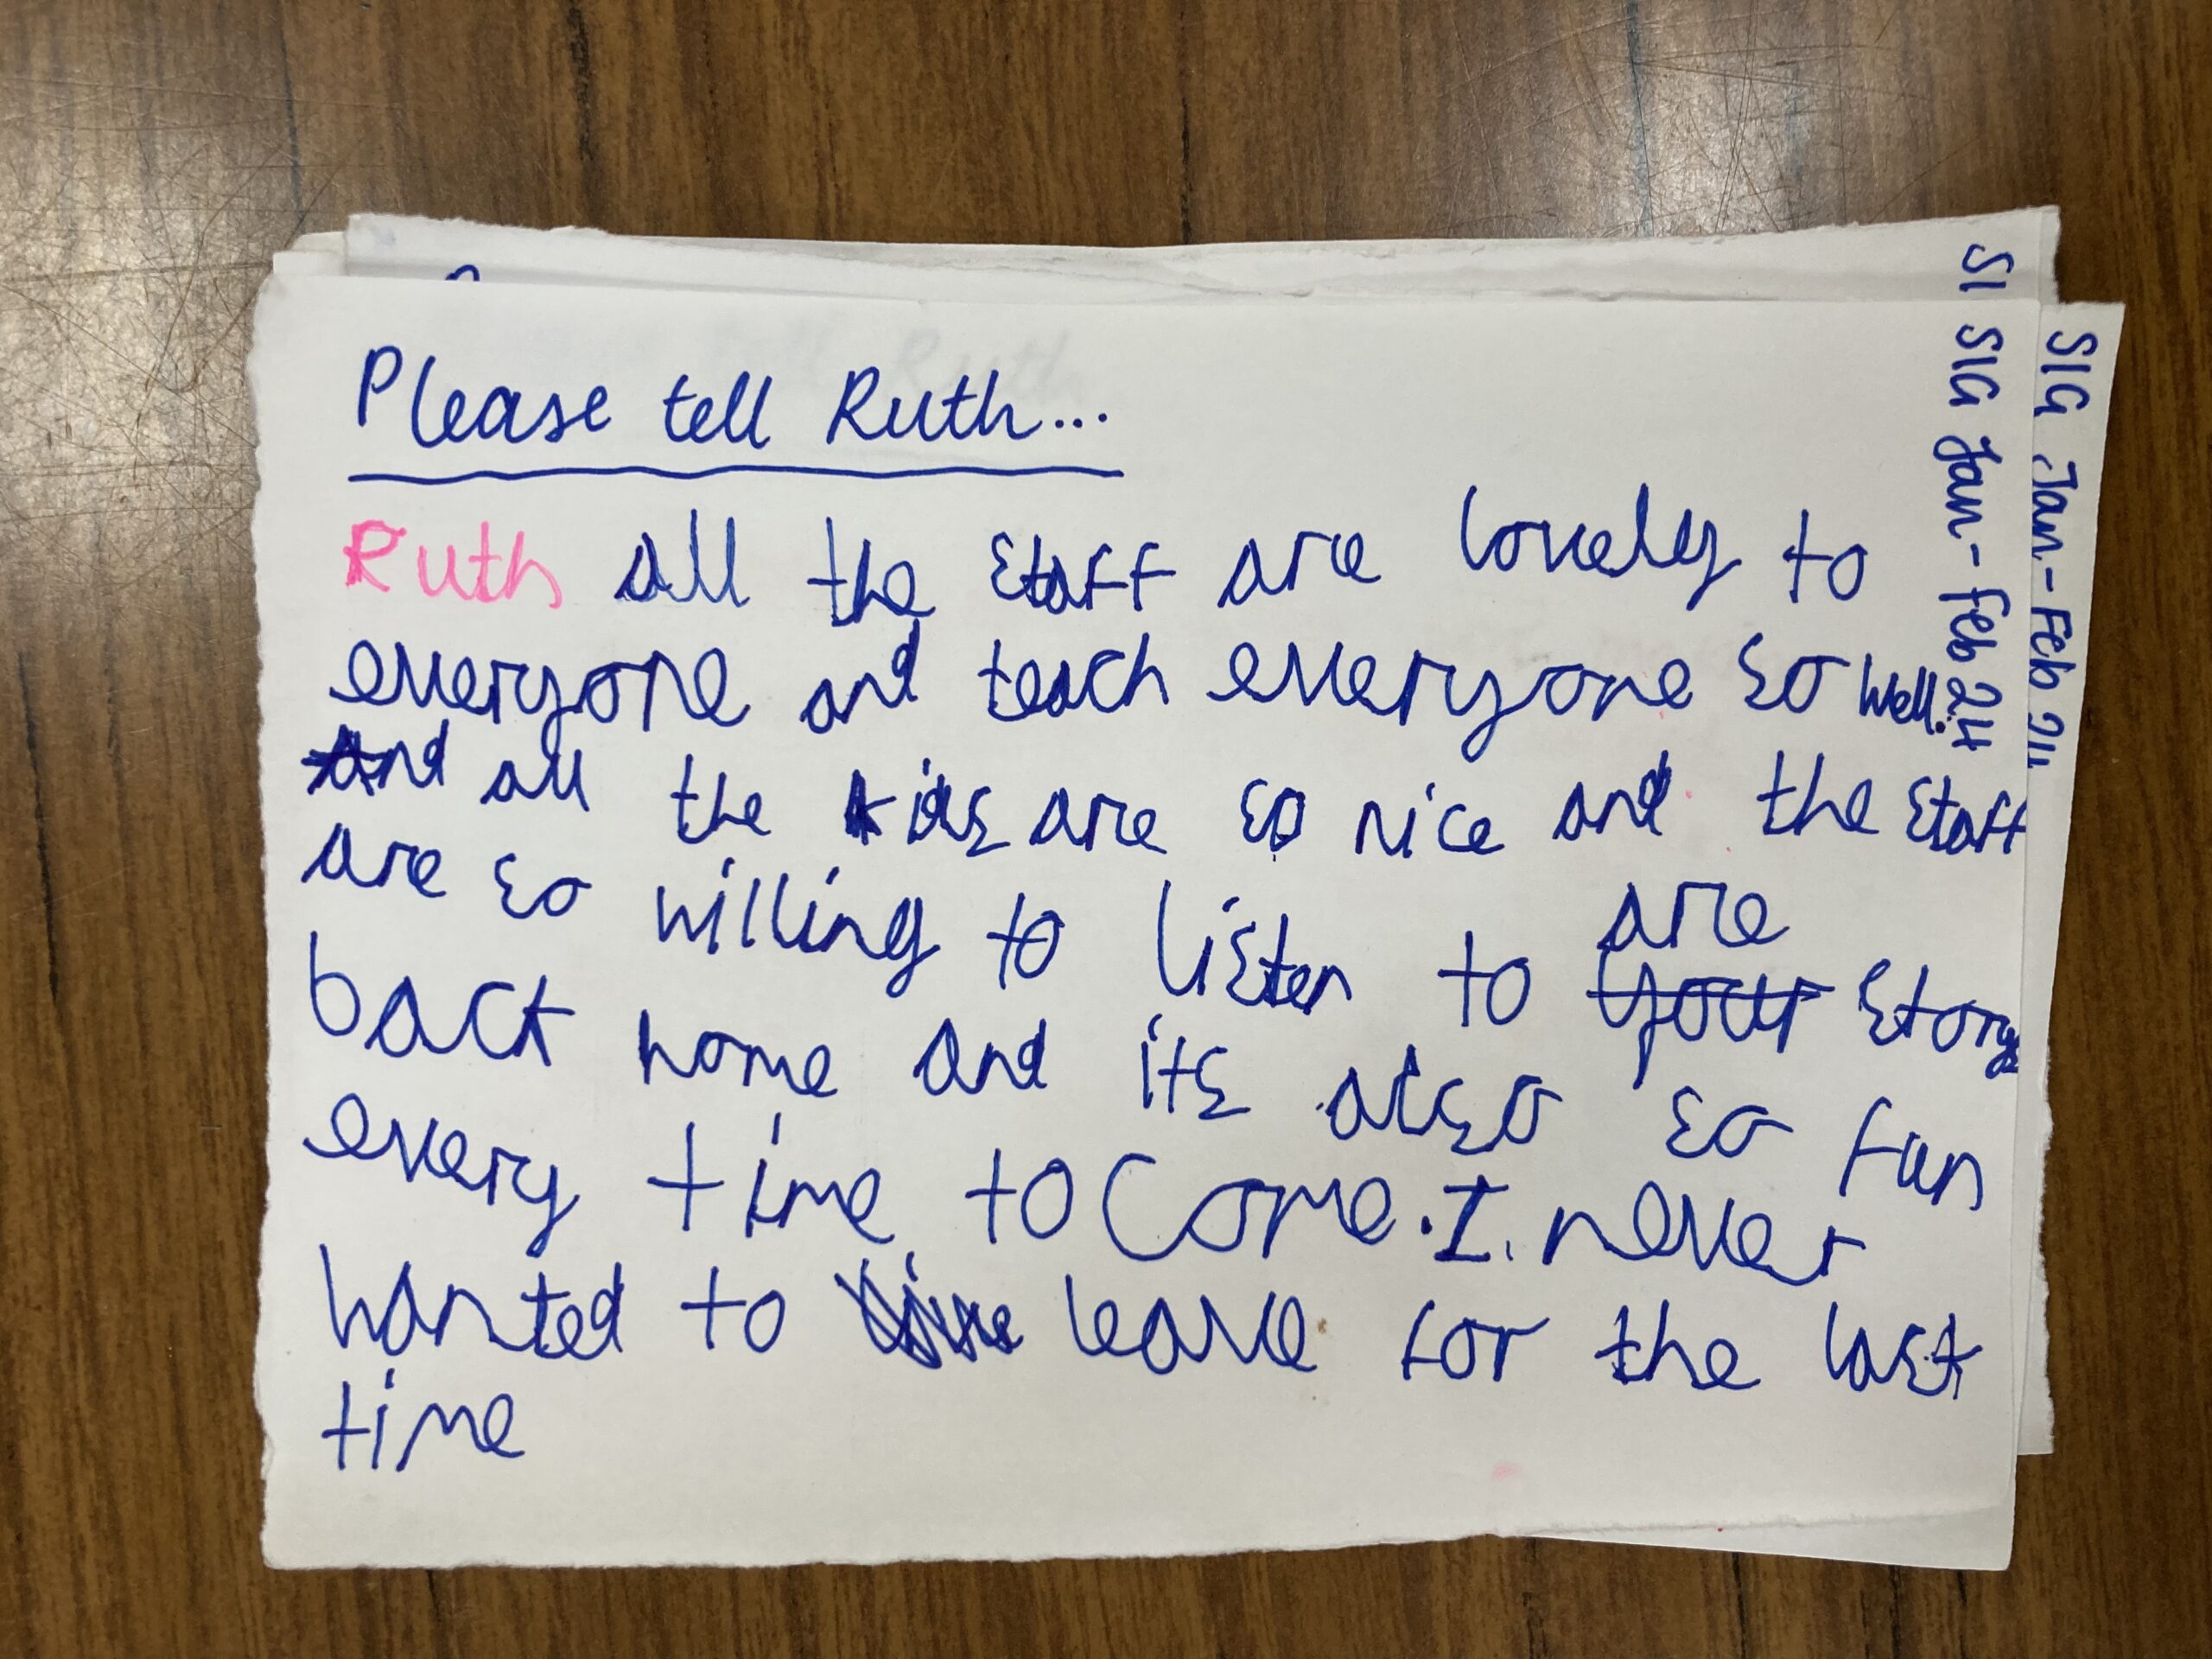 Please tell Ruth...
Ruth all the staff are lovely to
everyone and teach everyone so well.
And all the kids are so nice and the staff
are so willing to listen to are your storys
back home and its also so fun
every time to come. I never
wanted to leave for the last
time
SI SIG Jan-Feb 24
SIG Jan-Feb 24